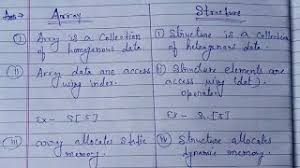 Ans:→ Array Structure
① Array is a Collection of homogenous data.
① Structure is a Collection of heterogenous data.
② Array data are access using index.
② Structure elements are access using (dot) . operator
Ex - S[5]
Ex - S[5]
iii array allocates static memory.
Structure allocates dynamic memory.